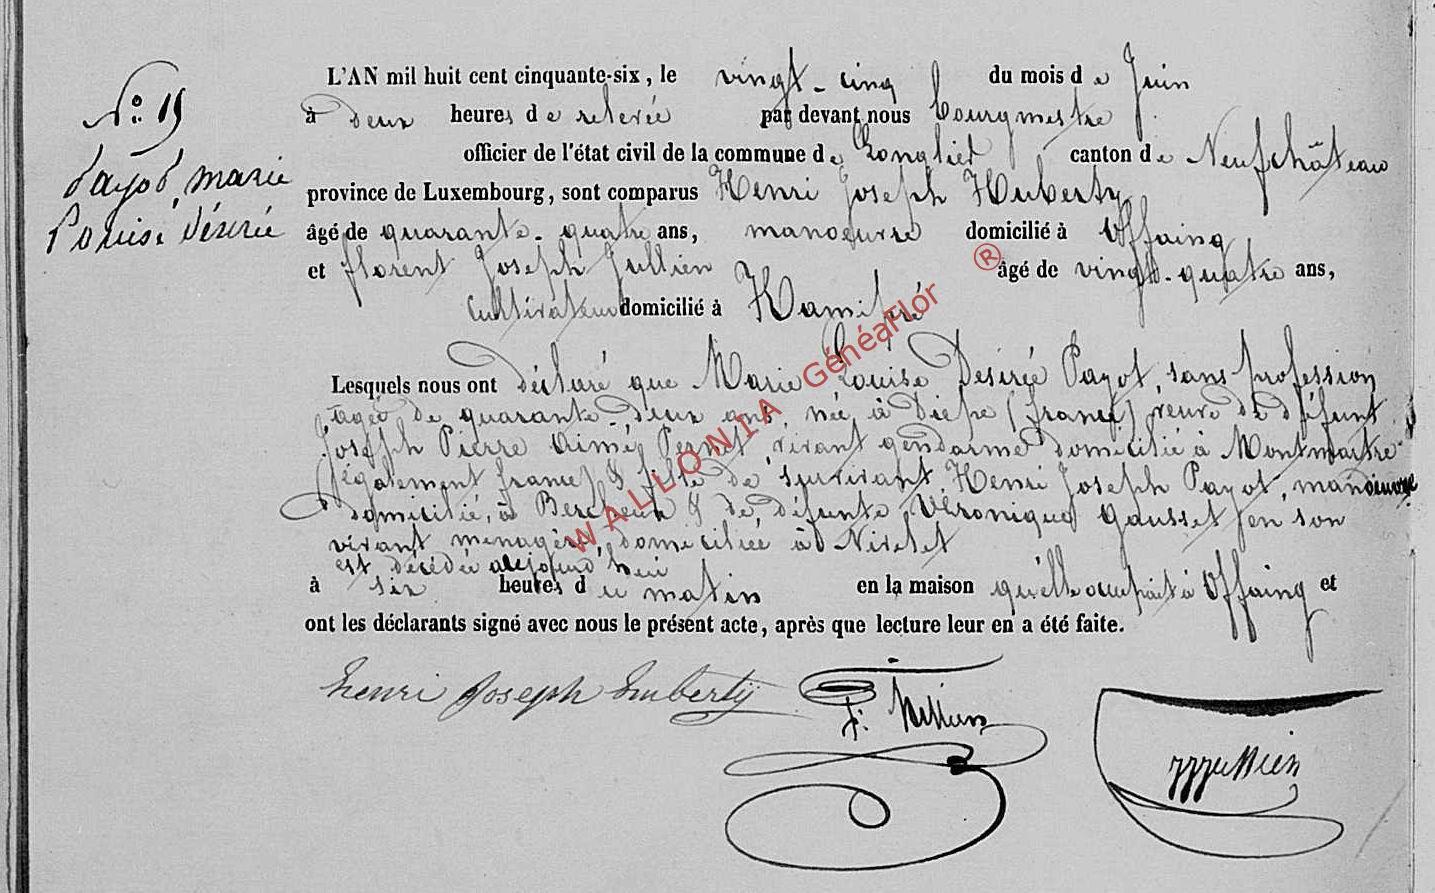 L'AN mil huit cent cinquante-six, le vingt-cinq du mois de Juin
N° 19
à deux heures de relevée par devant nous bourgmestre
officier de l'état civil de la commune de Longlier canton de Neufchâteau
payot, marie
province de Luxembourg, sont comparus Henri Joseph Huberty
Louise Désirée
âgé de quarante-quatre ans, manoeuvre domicilié à Offaing
et florent Joseph Jullien âgé de vingt-quatre ans,
Cultivateur domicilié à Hamipré
Lesquels nous ont déclaré que Marie Louise Desirée Payot, sans profession
agée de quarante-deux ans, née à Diepe (france) veuve de défunt
Joseph Pierre Aimé Pernet, vivant gendarme domicilié à Montmartre
(également france) & fille de survivant Henri Joseph Payot, manoeuvre
domicilié à Bercheux & de défunte Véronique Gausset en son
vivant ménagère, domiciliée à Nivelet
est décédée aujourd'hui
à six heures du matin en la maison qu'elle occupait à Offaing et
ont les déclarants signé avec nous le présent acte, après que lecture leur en a été faite.
henri Joseph huberty
WALLONIA GénéaFlor ®